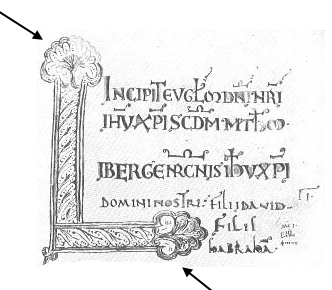 INCIPIT EVGLM DNI NRI
IHU XPI SCDM·MTHM·
LIBER GENRCNIS IHU XPI
DOMINI NOSTRI: FILII DAVID
FILII
HABRAHA